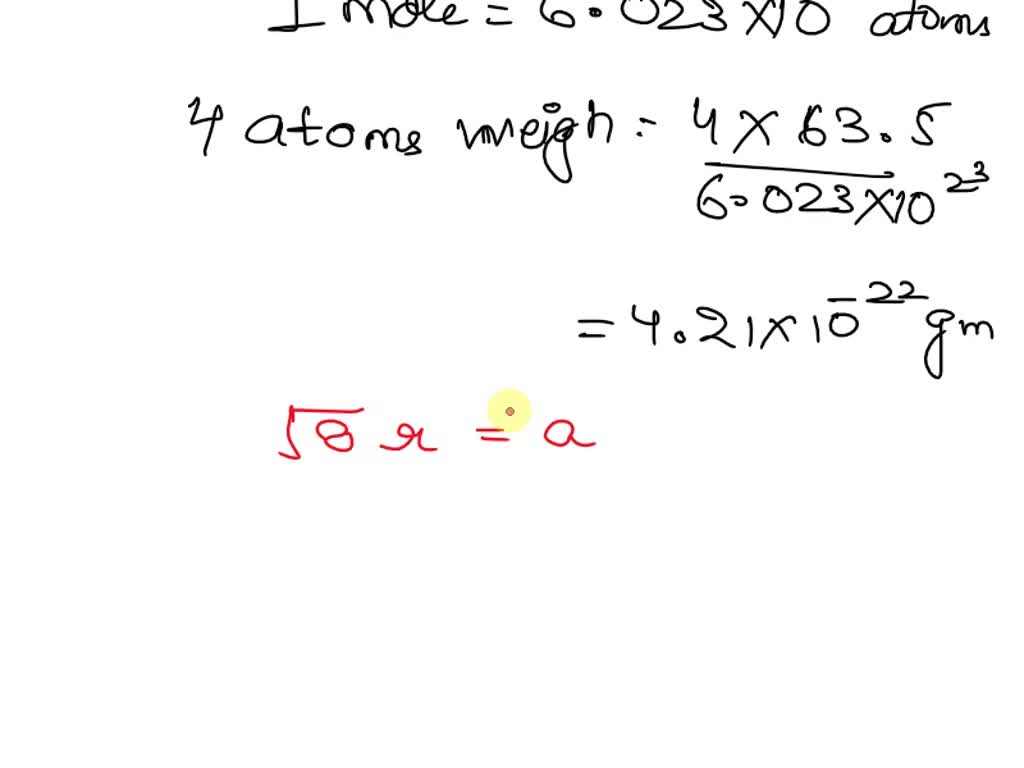 1 mole = 6.023×10 atoms
4 atoms weigh = 4 × 63.5
6.023×10²³
= 4.21×10⁻²² gm
√8 r = a